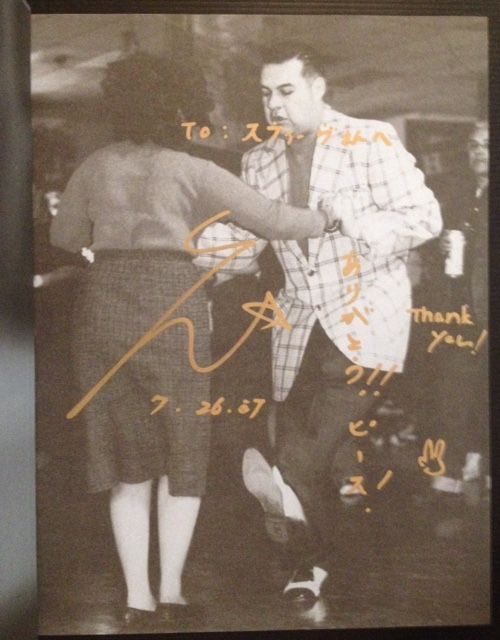 To: スティーヴさんへ
ありがとう!!
ピース!
Thank
you!
7.26.07